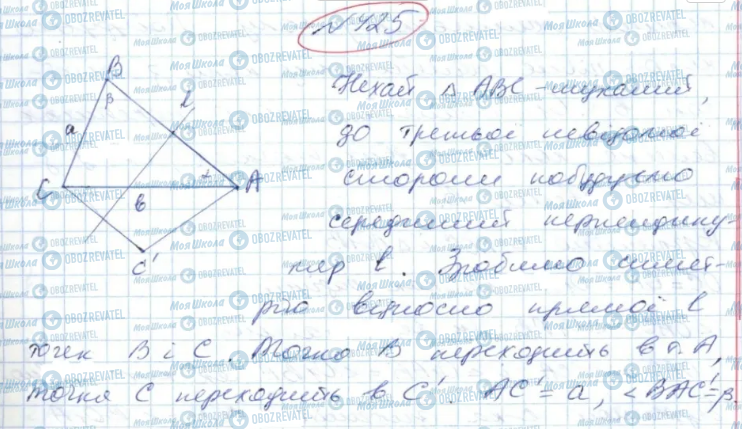 №425
B
β
l
a
Нехай Δ ABC - шуканий,
до третьої невідомої
C
α
A
b
сторони побудуємо
середній перпендику-
C'
ляр l. Зробимо симет-
рію відносно прямої l
точек B і C. Точка B переходить в т. A,
точка C переходить в C'. AC' = a, <BAC' = β.
МояШкола OBOZREVATEL